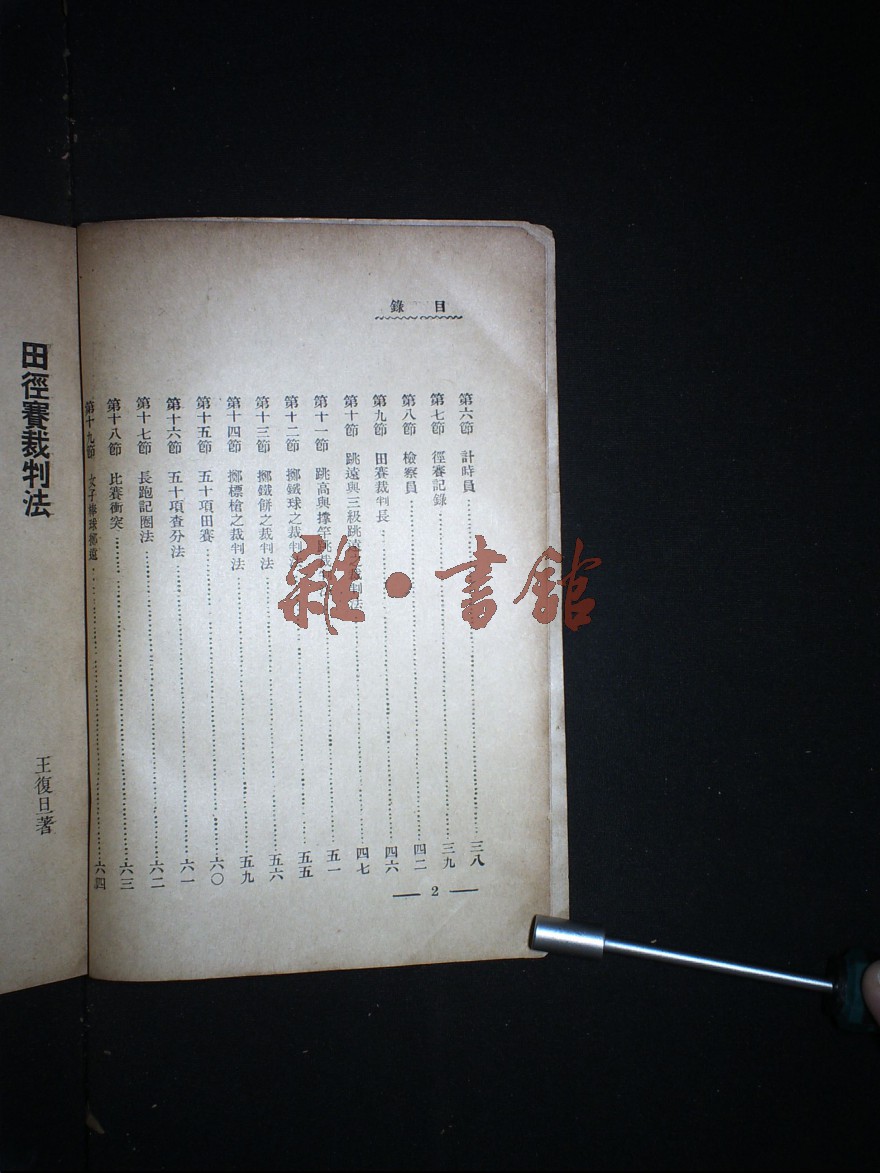 目錄
第六節 計時員……三八
第七節 徑賽記錄……三九
第八節 檢察員……四二
第九節 田賽裁判長……四六
第十節 跳遠與三級跳遠之裁判法……四七
第十一節 跳高與撐竿跳裁……五一
第十二節 擲鐵球之裁判……五五
第十三節 擲鐵餅之裁判法……五六
第十四節 擲標槍之裁判法……五九
第十五節 五十項田賽……六〇
第十六節 五十項查分法……六一
第十七節 長跑記圈法……六二
第十八節 比賽衝突……六三
第十九節 女子棒球擲遠……六四
— 2 —
田徑賽裁判法
王復旦著
雜·書館